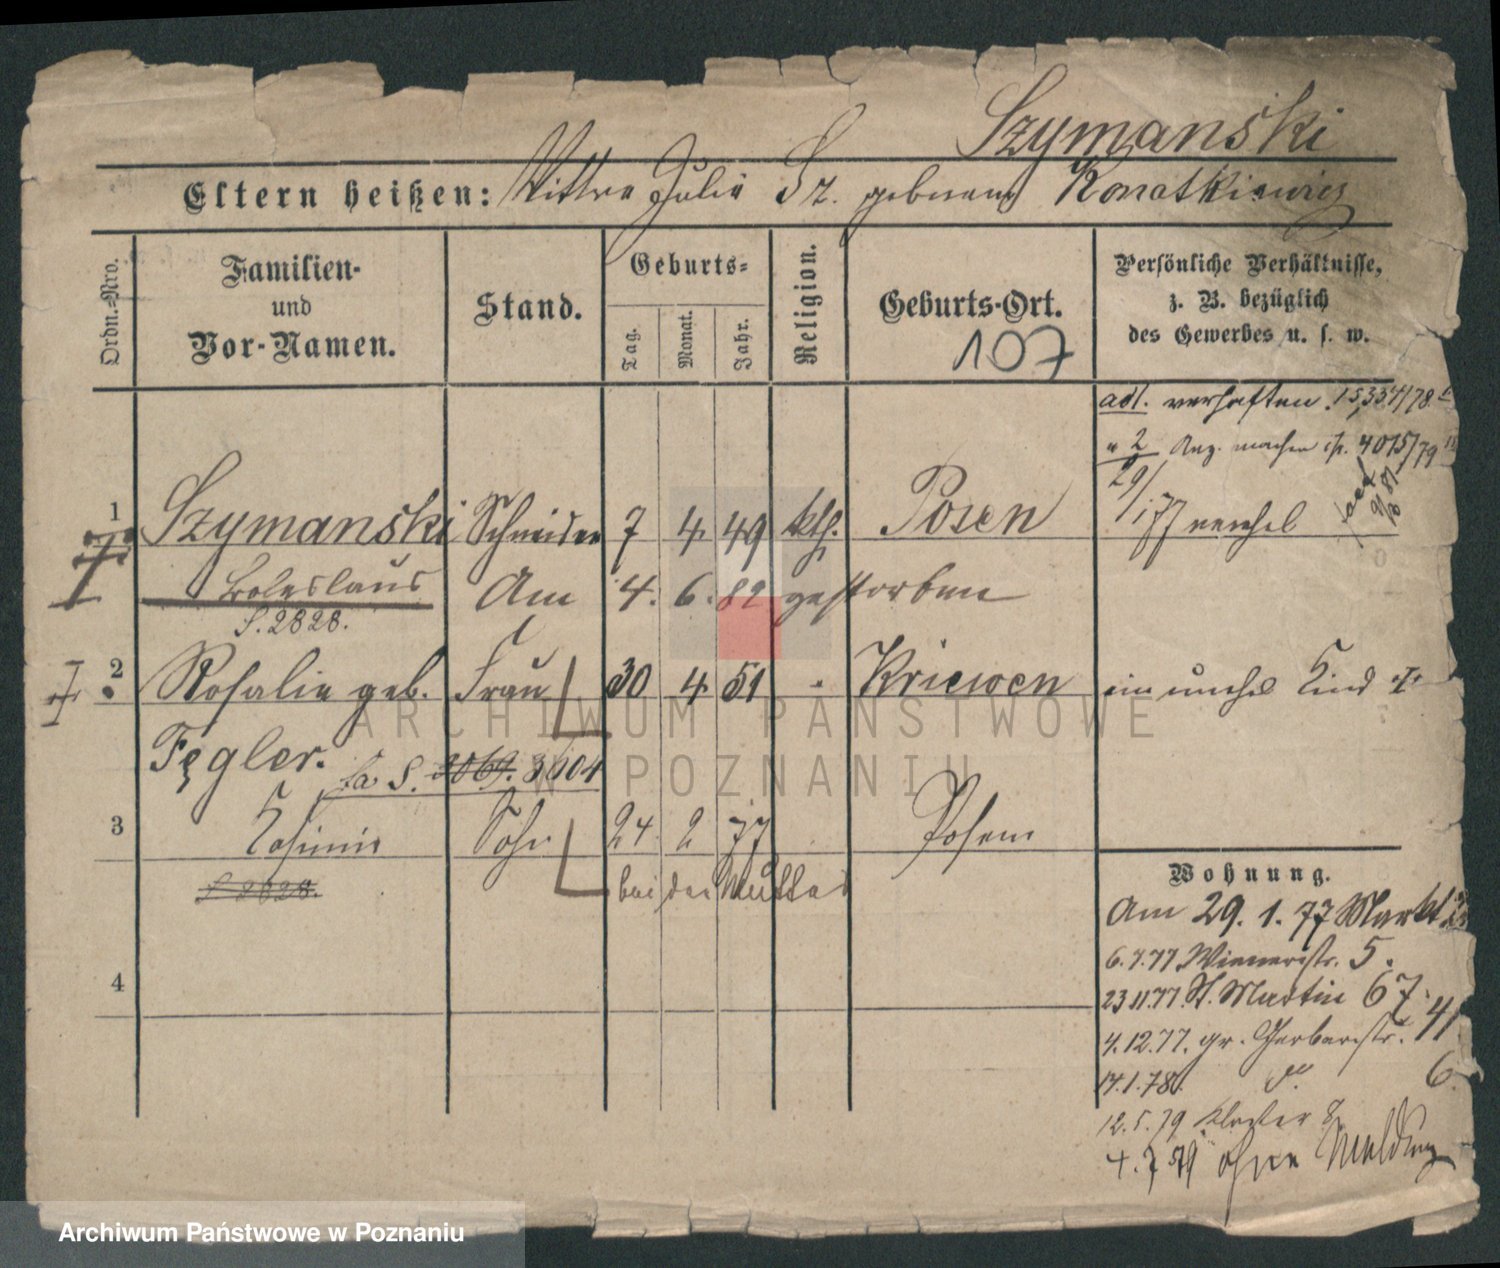 Szymanski
Eltern heißen: Wittwe Julie Sz. geborene Konatkiewicz
Ordn.-Nro.
Familien-
und
Vor-Namen.
Stand.
Geburts-
Tag.
Monat.
Jahr.
Religion.
Geburts-Ort.
107
Persönliche Verhältnisse,
z. B. bezüglich
des Gewerbes u. s. w.
ad1. verhaften 15,334/78
" 2 Anz. machen 4075/79
29/1 77
1 Szymanski Schneider 7 4 49 kth. Posen
Boleslaus Am 4. 6. 82 gestorben
S. 2828.
2 Rosalie geb. Frau 30 4 51 " Kriewen ein unehel Kind
Fegler. S. 3064. 3604
3 Kasimir Sohn 24 2 77 Posen
S 2828. bei der Mutter
4
Wohnung.
Am 29. 1. 77 Markt
6.7.77 Wienerstr. 5.
23 11.77. St. Martin 67.
4.12.77. gr. Gerberstr. 41
14.1.78. do. 6.
12.5.79 Kloster
4.7 79 ohne Meldung
Archiwum Państwowe
w Poznaniu
Archiwum Państwowe w Poznaniu